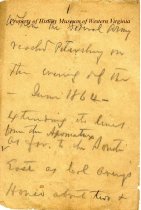 Property of History Museum of Western Virginia
When the Federal Army
reached Petersburg on
the evening of the
— June 1864 —
extending its lines
from the Appomattox
as far to the South
East as Col Avery
House about two &